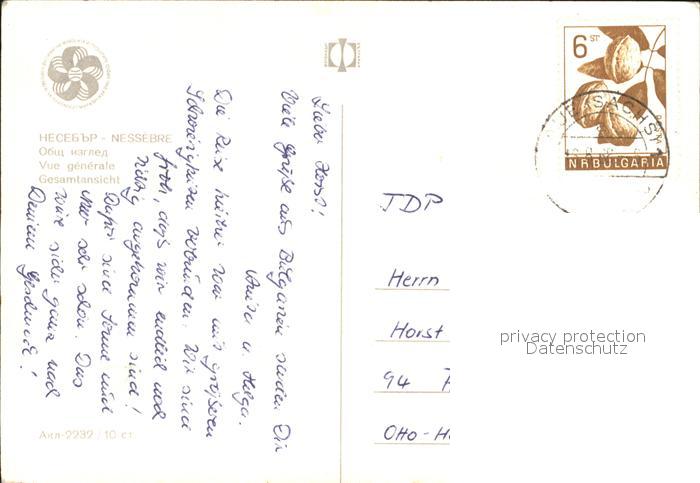 НЕСЕБЪР - NESSEBRE
Общ изглед
Vue générale
Gesamtansicht
Акл-2232 / 10 ст.
Lieber Horst!
Viele Grüße aus Bulgarien senden Dir
u. Helga.
Die Reise hatten wir mit größeren
Schwierigkeiten verbunden. Wir sind
froh, daß wir endlich und
ruhig angekommen sind!
Dafür sind Sonne und
Meer sehr schön. Das
wäre sicher ganz nach
Deinem Geschmack!
6 ST
NR BULGARIA
TDP
Herrn
Horst
94
Otto-H
privacy protection
Datenschutz